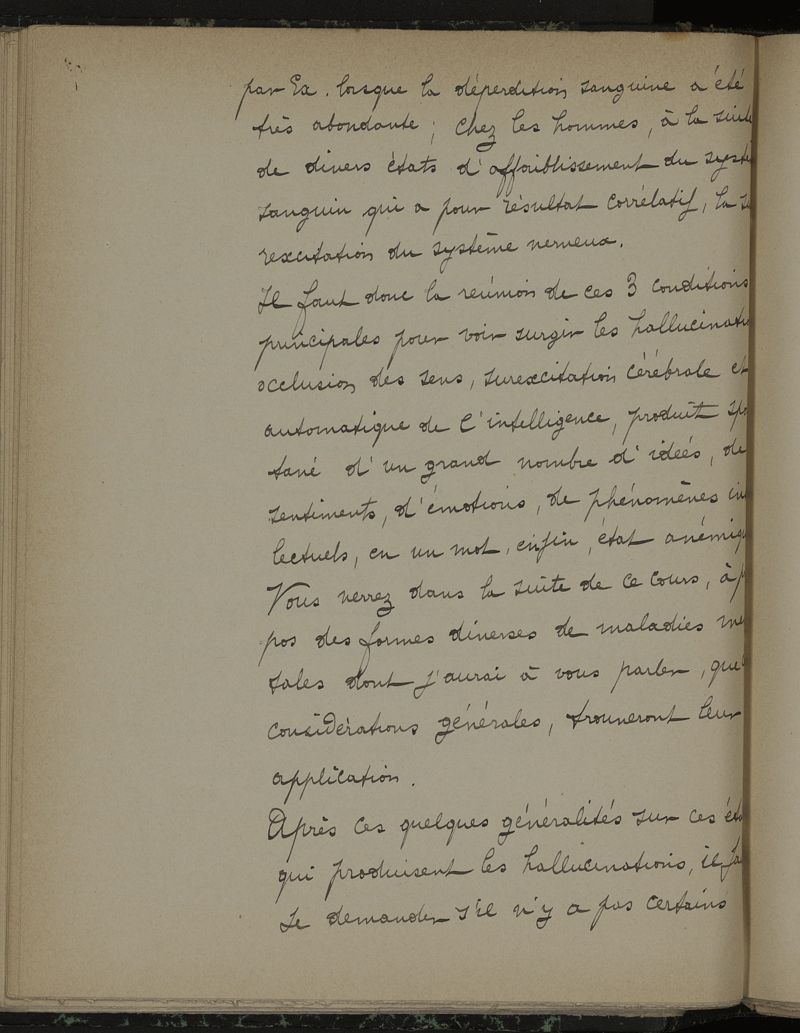 par Ex. lorsque la déperdition sanguine a été
très abondante ; chez les hommes, à la suite
de divers états d'affaiblissement du systè
sanguin qui a pour résultat corrélatif, la su
rexcitation du système nerveux.
Il faut donc la reúnion de ces 3 conditions
principales pour voir surgir les hallucinatio
occlusion des sens, surexcitation cérébrale et
automatique de l'intelligence, produit spo
tané d'un grand nombre d'ideés, de
sentiments, d'émotions, de phénomènes in
lectuels, en un mot, enfin, état anémiq
Vous verrez dans la suite de ce cours, à p
pos des formes diverses de maladies me
tales dont j'aurai à vous parler, que
considérations générales, trouveront leur
application.
Après ces quelques généralités sur ces ét
qui produisent les hallucinations, il fa
se demander s'il n'y a pas certains